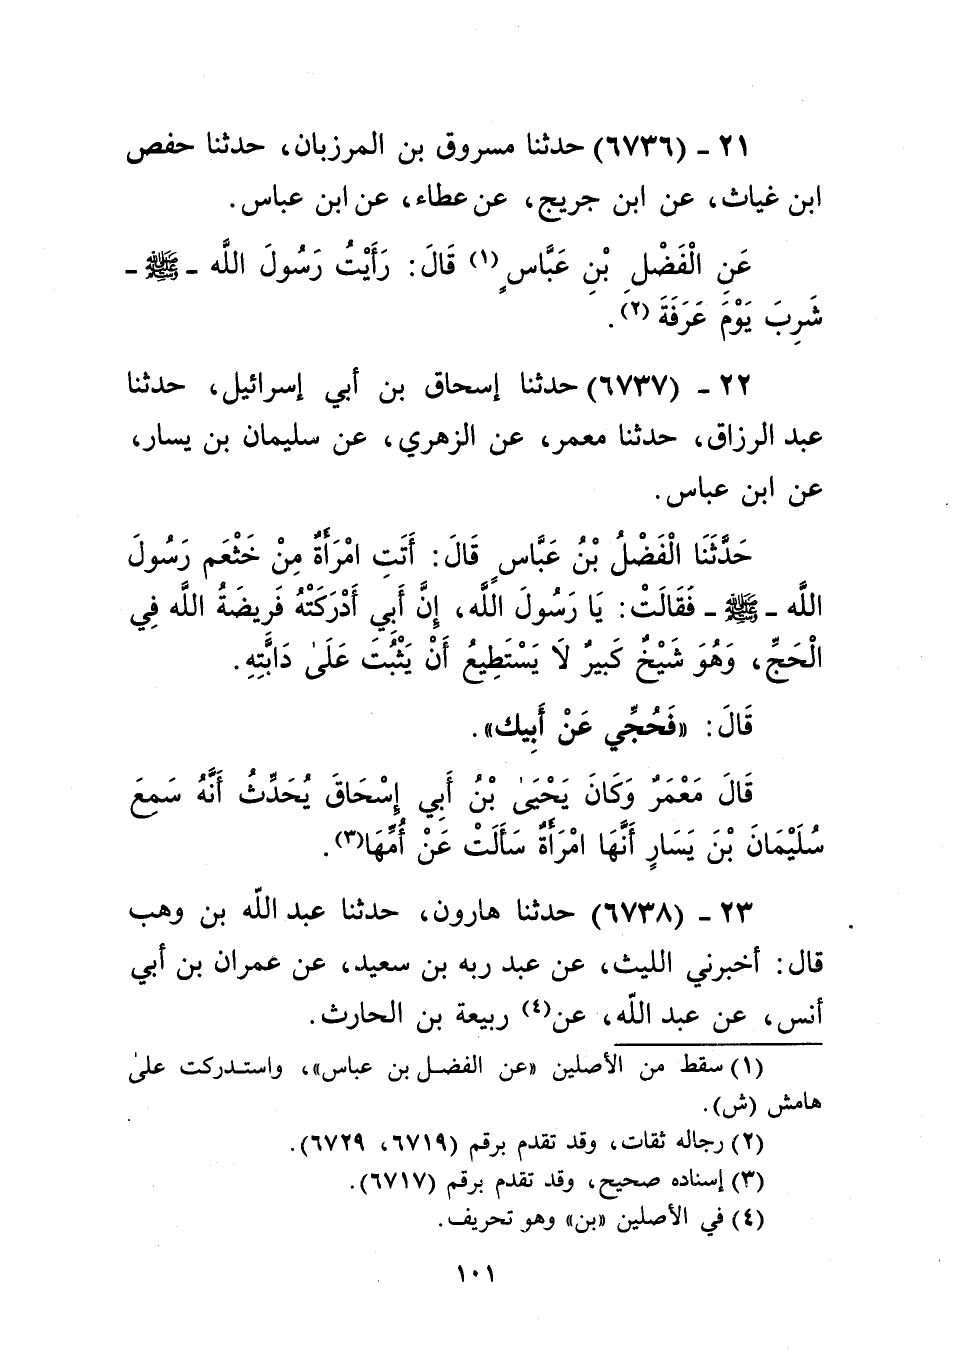 ٢١ ـ (٦٧٣٦) حدثنا مسروق بن المرزبان، حدثنا حفص
ابن غياث، عن ابن جريج، عن عطاء، عن ابن عباس.
عَنِ الْفَضْلِ بْنِ عَبَّاسٍ (١) قَالَ: رَأَيْتُ رَسُولَ اللَّه ـ ﷺ ـ
شَرِبَ يَوْمَ عَرَفَةَ (٢).
٢٢ ـ (٦٧٣٧) حدثنا إسحاق بن أبي إسرائيل، حدثنا
عبد الرزاق، حدثنا معمر، عن الزهري، عن سليمان بن يسار،
عن ابن عباس.
حَدَّثَنَا الْفَضْلُ بْنُ عَبَّاسٍ قَالَ: أَتَتِ امْرَأَةٌ مِنْ خَثْعَم رَسُولَ
اللَّه ـ ﷺ ـ فَقَالَتْ: يَا رَسُولَ اللَّه، إِنَّ أَبِي أَدْرَكَتْهُ فَرِيضَةُ اللَّه فِي
الْحَجِّ، وَهُوَ شَيْخٌ كَبِيرٌ لَا يَسْتَطِيعُ أَنْ يَثْبُتَ عَلَىٰ دَابَّتِهِ.
قَالَ: «فَحُجِّي عَنْ أَبِيك».
قَالَ مَعْمَرٌ وَكَانَ يَحْيَىٰ بْنُ أَبِي إِسْحَاقَ يُحَدِّثُ أَنَّهُ سَمِعَ
سُلَيْمَانَ بْنَ يَسَارٍ أَنَّهَا امْرَأَةٌ سَأَلَتْ عَنْ أُمِّهَا(٣).
٢٣ ـ (٦٧٣٨) حدثنا هارون، حدثنا عبد اللَّه بن وهب
قال: أخبرني الليث، عن عبد ربه بن سعيد، عن عمران بن أبي
أنس، عن عبد اللَّه، عن(٤) ربيعة بن الحارث.
(١) سقط من الأصلين «عن الفضل بن عباس»، واستدركت علىٰ
هامش (ش).
(٢) رجاله ثقات، وقد تقدم برقم (٦٧١٩، ٦٧٢٩).
(٣) إسناده صحيح، وقد تقدم برقم (٦٧١٧).
(٤) في الأصلين «بن» وهو تحريف.
١٠١